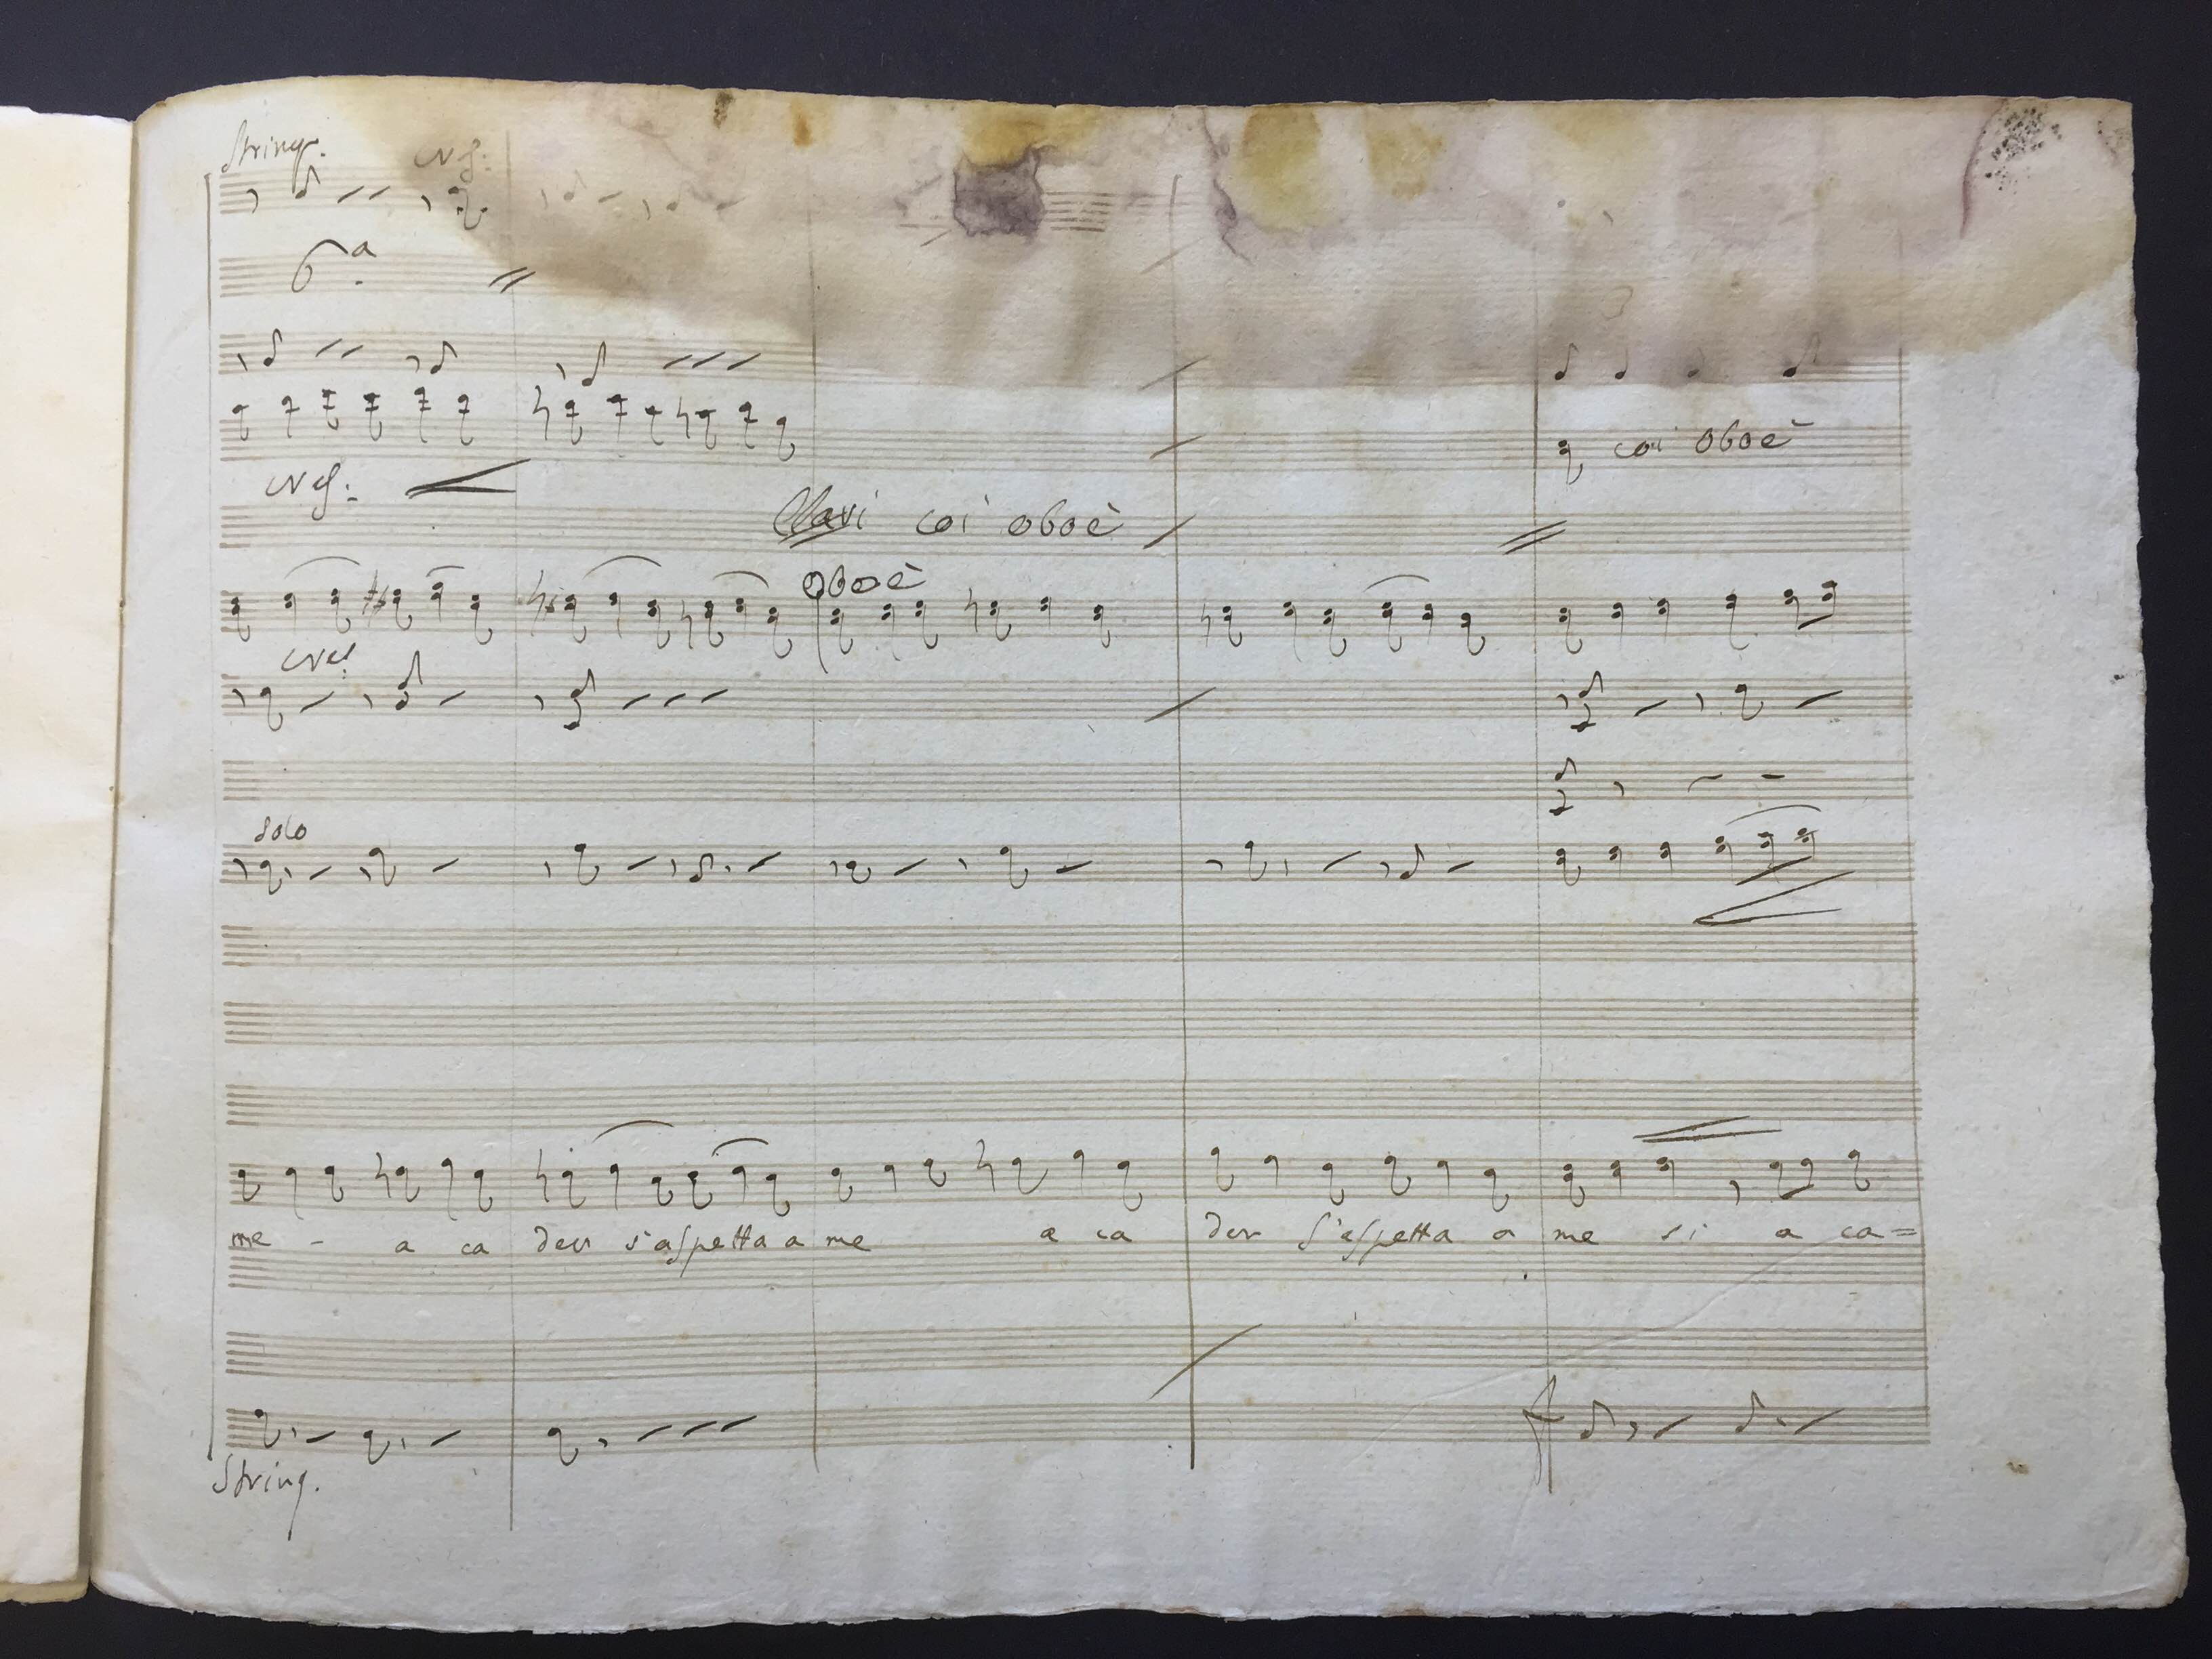 String.
6.a
coi oboè
Clavi coi oboè
oboè
solo
me - a ca der s'aspetta a me a ca der s'aspetta a me si a ca=
String.